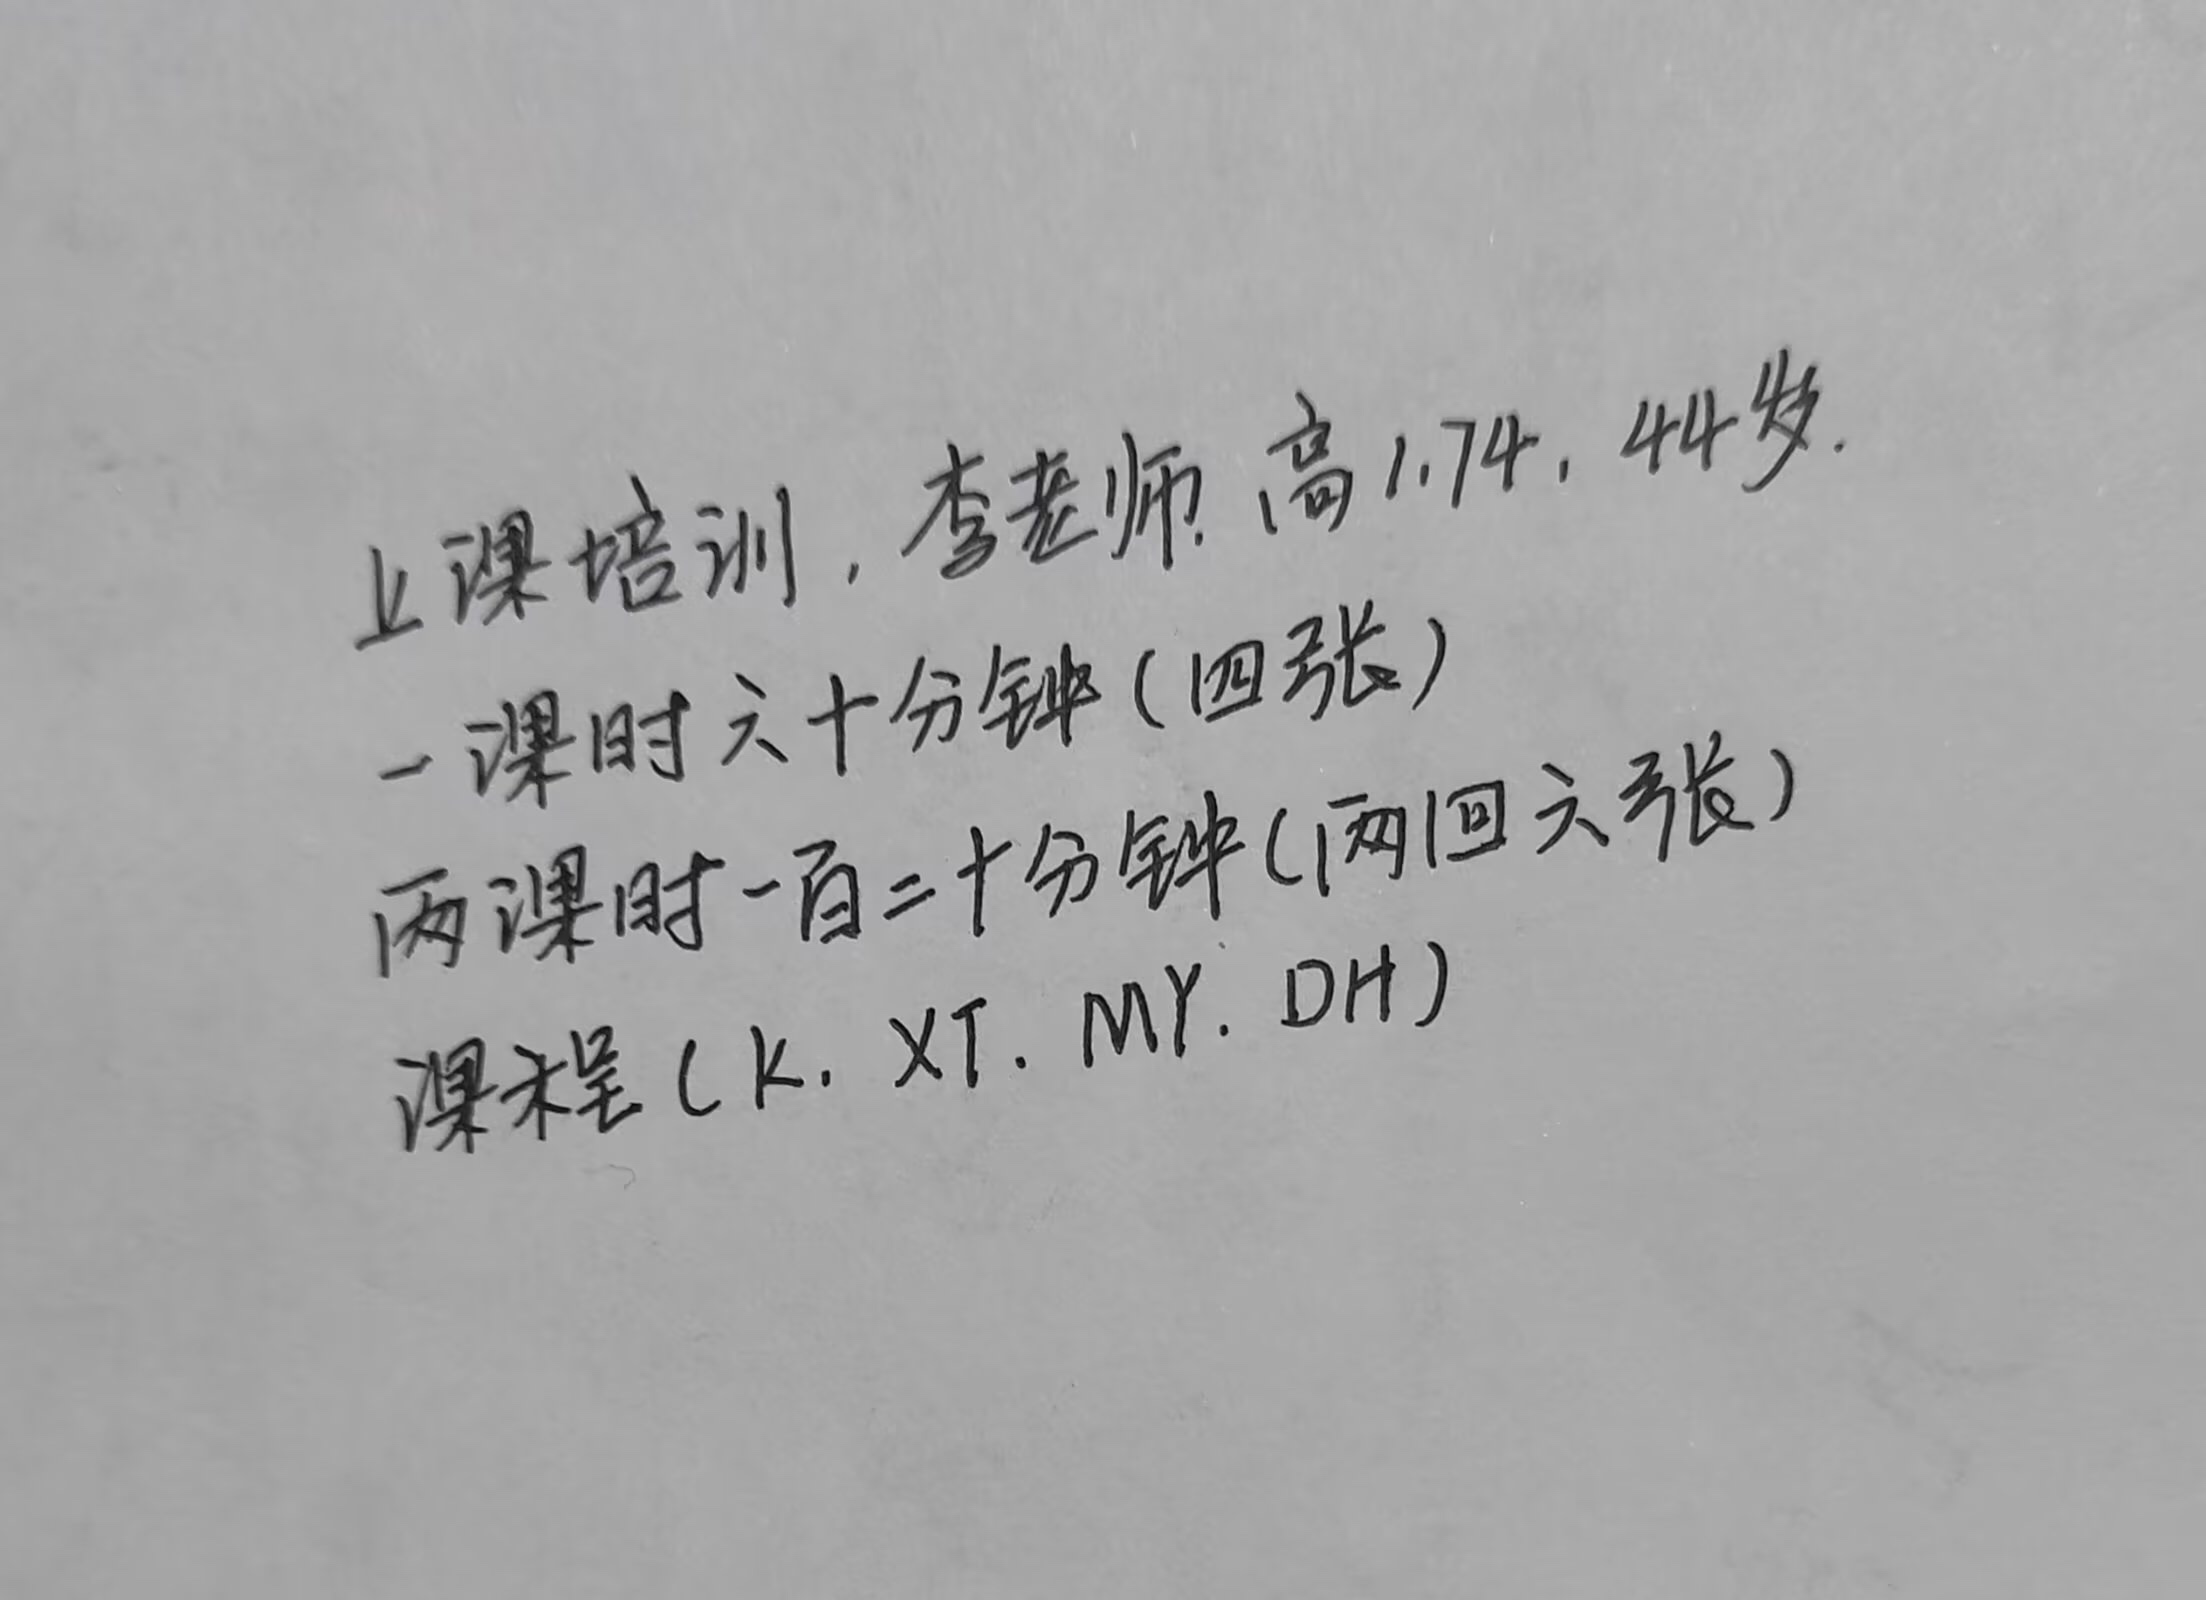 上课培训,李老师.高1.74,44岁.
一课时六十分钟(四张)
两课时一百二十分钟(两回六张)
课程(K.XT.MY.DH)